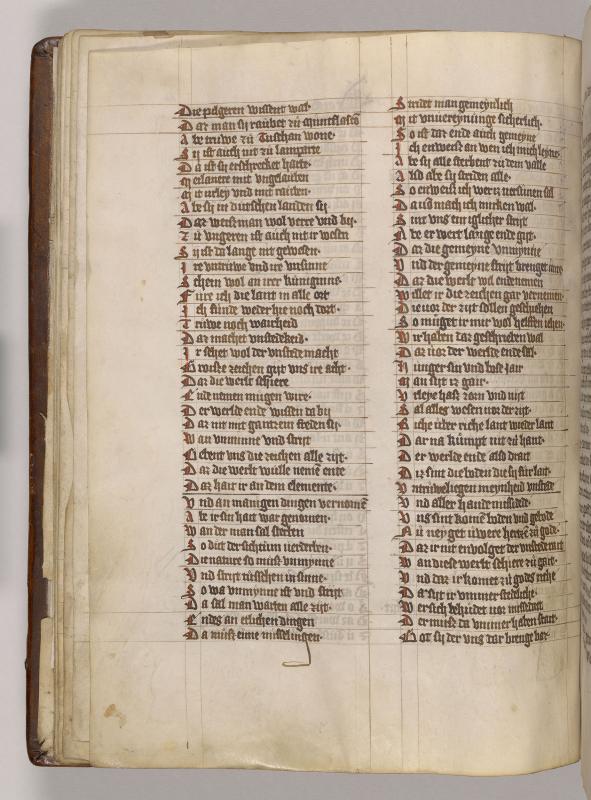 Die pilgeren wissent wal
Daz man sij raubet zů
Abe truwe zů Tuschan wone
Sij ist auch nit zů lamparte
Da ist sij erschrecket harte
mit vngelauben
Mit vrley vnd mit rauben
Abe sij in dutschen landen sij
Daz weisz man wol verre vnd bij
Zu vngeren ist auch nit ir wesen
Sij ist da lange nit gewesen
Ire vntruwe vnd ire vnsinne
Schein wol an irer kunigynne
Füre ich die lant in alle ort
Ich finde weder hie noch dort
Truwe noch warheid
Daz machet vnstedekeid
Ir sehet wol der vnstede macht
Groisze zeichen gijt vns ire acht
Daz die werlt schiere
Ende nemen mügen wire
Der werlde ende wissen da bij
Daz nit mit gantzem steden sij
Wan vnmine vnd strijt
Gebent vns die zeichen alle zijt
Daz die werlt wülle nemē ente
Daz hait ir an dem elemente
Vnd an manigen dingen vernomē
Abe ir sin hait war genomen
Wan der man sal sterben
So důt der siechtum verderben
Die nature so müsz vnmynne
Vnd strijt tüsschen in sinne
So wa vnmynne ist vnd strijt
Da sal man warten alle zijt
Endes an etlichen dingen
Da müsz eime misselingen
Findet man gemeynlich
Mit vnuereynunge sicherlich
So ist daz ende auch gemeyne
Ich enweisz an wen ich mich leyne
Abe sij alle sterbent zü dem valle
Also abe sij striden alle
So enweisz ich wer iz versünen sal
Da usz mach ich mirken wal
Sint vns ein iglicher strijt
Abe er wert lange ende gijt
Daz die gemeyne vnmynne
Vnd der gemeyne strijt brenget inne
Daz die werlt wil ende nemen
Willer ir die zeichen gar vernemen
Die vor der zijt sollen geschehen
So müget ir mir wol helffen iehen
Wir haben daz geschrieben wal
Daz vor der werlde ende sal
Hunger sin vnd bose jair
Man siht iz gair
Vrleye hasz zorn vnd nijt
Sal alles wesen vor der zijt
Riche über riche lant wieder lant
Dar na kümpt nit zü hant
Der werlde ende also drait
Diz sint die boden die sij für lait
Vntruwe liegen meynheid vnstede
Vnd aller hande missedede
Vns sint komē boden vnd gebode
Nü neyget üwere hertzē zü gode
Daz ir nit envolget der vnstede mit
Wan diese werlt schiere zü gait
Vnd daz ir komet zü gods riche
Da sijt ir vmmer stedeliche
Wer sich behüdet vor missetait
Der müsz da vmmer haben stait
Got sij der vns dar brenge bar